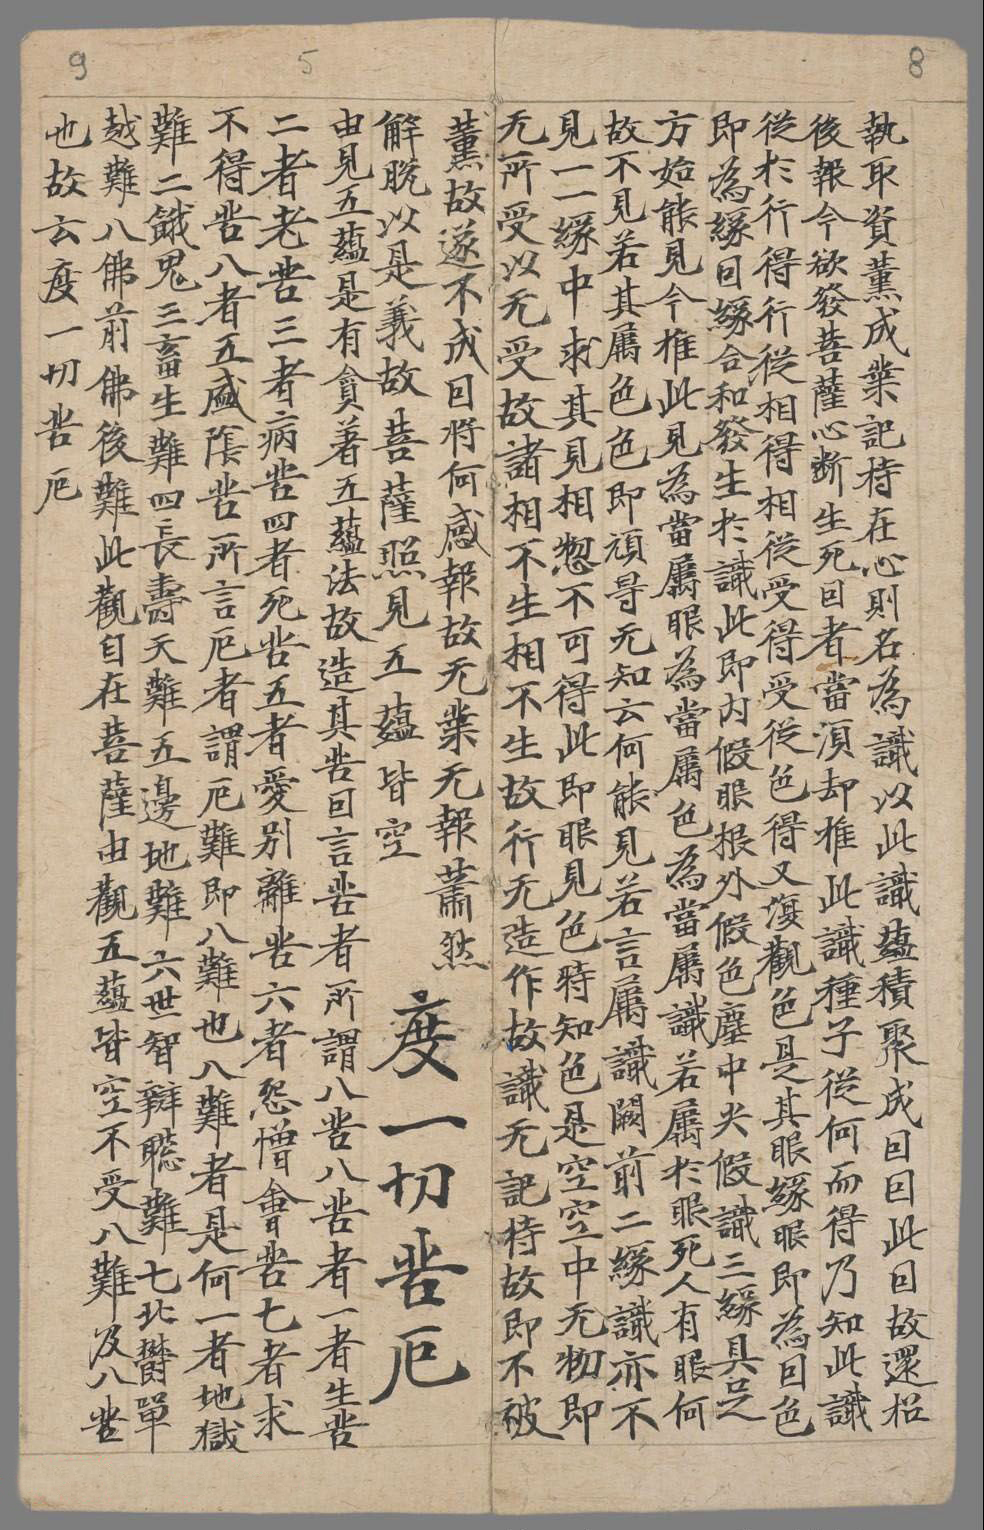 8
執取資薰成業記持在心則名為識以此識蘊積聚成因因此因故還招
後報今欲發菩薩心斷生死因者當須却推此識種子從何而得乃知此識
從於行得行從相得相從受得受從色得又復觀色是其眼緣眼即為因色
即為緣因緣合和發生於識此即內假眼根外假色塵中央假識三緣具足
方始能見今推此見為當屬眼為當屬色為當屬識若屬於眼死人有眼何
故不見若其屬色色即頑㝵无知云何能見若言屬識闕前二緣識亦不
見一一緣中求其見相惣不可得此即眼見色時知色是空空中无物即
无所受以无受故諸相不生相不生故行无造作故識无記持故即不被
薰故遂不成因將何感報故无業无報蕭然
解脫以是義故菩薩照見五蘊皆空 度一切苦厄
由見五蘊是有貪著五蘊法故造其苦因言苦者所謂八苦八苦者一者生苦
二者老苦三者病苦四者死苦五者愛別離苦六者怨憎會苦七者求
不得苦八者五盛陰苦所言厄者謂厄難即八難也八難者是何一者地獄
難二餓鬼三畜生難四長壽天難五邊地難六世智辯聰難七北欝單
越難八佛前佛後難此觀自在菩薩由觀五蘊皆空不受八難及八苦
也故云度一切苦厄
5
9